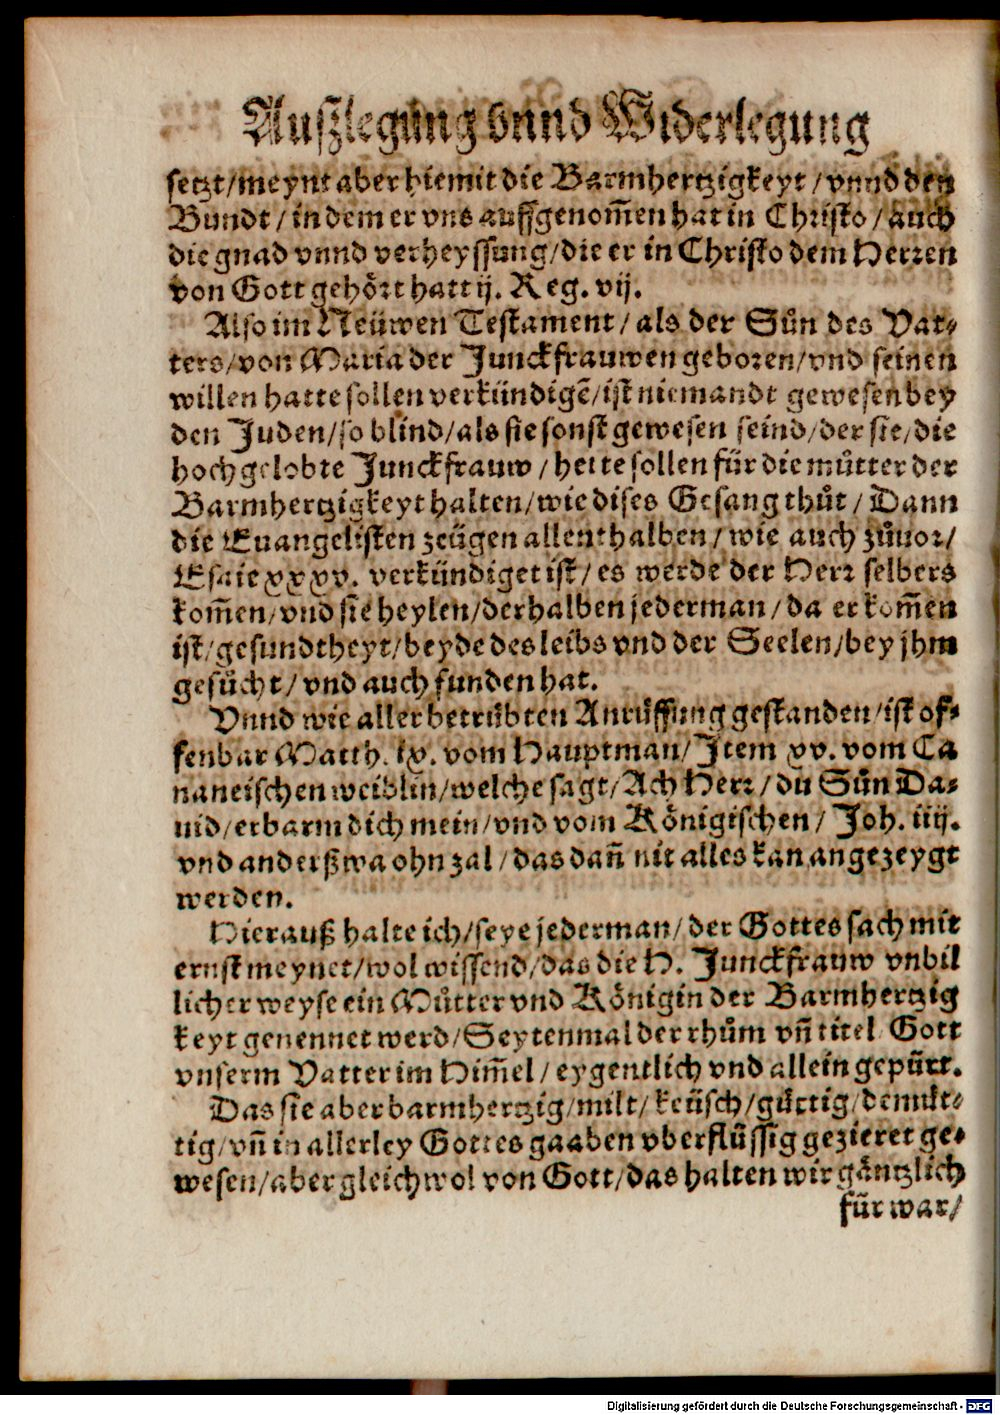 Auſzlegung vnnd Widerlegung
ſetzt/meynt aber hiemit die Barmhertzigkeyt/vnnd den
Bundt/in dem er vns auffgenom̃en hat in Chriſto/auch
die gnad vnnd verheyſſung/die er in Chriſto dem Herren
von Gott gehört hatt ij. Reg. vij.
Alſo im Neüwen Teſtament/als der Sůn des Vat⸗
ters/von Maria der Junckfrauwen geboren/vnd ſeinen
willen hatte ſollen verkündigẽ/iſt niemandt geweſen bey
den Juden/ſo blind/als ſie ſonſt geweſen ſeind/der ſie/die
hochgelobte Junckfrauw/hette ſollen für die můtter der
Barmhertzigkeyt halten/wie diſes Geſang thůt/Dann
die Euangeliſten zeügen allenthalben/wie auch zůuor/
Eſaie xxxv. verkündiget iſt/es werde der Herr ſelbers
kom̃en/vnd ſie heylen/derhalben jederman/da er kom̃en
iſt/geſundtheyt/beyde des leibs vnd der Seelen/bey jhm
geſůcht/vnd auch funden hat.
Vnnd wie aller betrübten Anrůffung geſtanden/iſt of⸗
fenbar Matth. ix. vom Hauptman/Item xv. vom Ca
naneiſchen weiblin/welche ſagt/Ach Herr/du Sůn Da⸗
uid/erbarm dich mein/vnd vom Königiſchen/Joh. iiij.
vnd anderßwa ohn zal/das dañ nit alles kan angezeygt
werden.
Hierauß halte ich/ſeye jederman/der Gottes ſach mit
ernſt meynet/wol wiſſend/das die H. Junckfrauw vnbil
licher weyſe ein Můtter vnd Königin der Barmhertzig
keyt genennet werd/Seytenmal der rhům vñ titel Gott
vnſerm Vatter im Him̃el/eygentlich vnd allein gepürt.
Das ſie aber barmhertzig/milt/keüſch/gůttig/demůt⸗
tig/vñ in allerley Gottes gaaben vberflüſſig gezieret ge⸗
weſen/aber gleichwol von Gott/das halten wir gäntzlich
für war/
Digitalisierung gefördert durch die Deutsche Forschungsgemeinschaft - DFG